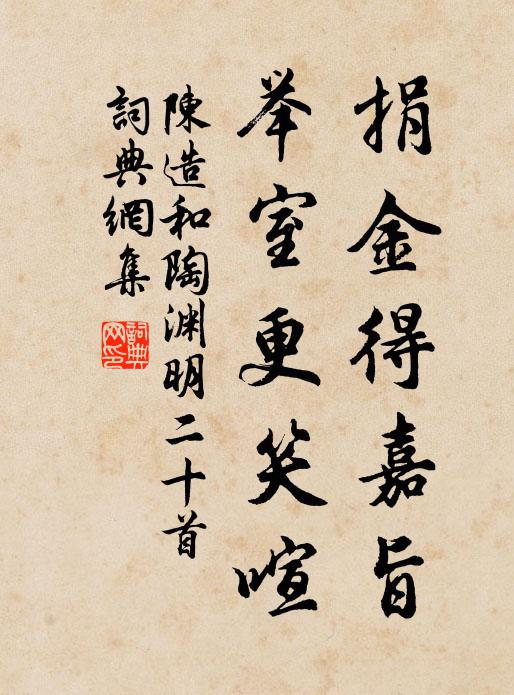 捐金得嘉旨
举室更笑喧
陳造和陶渊明二十首
詞典網集
詞典网印